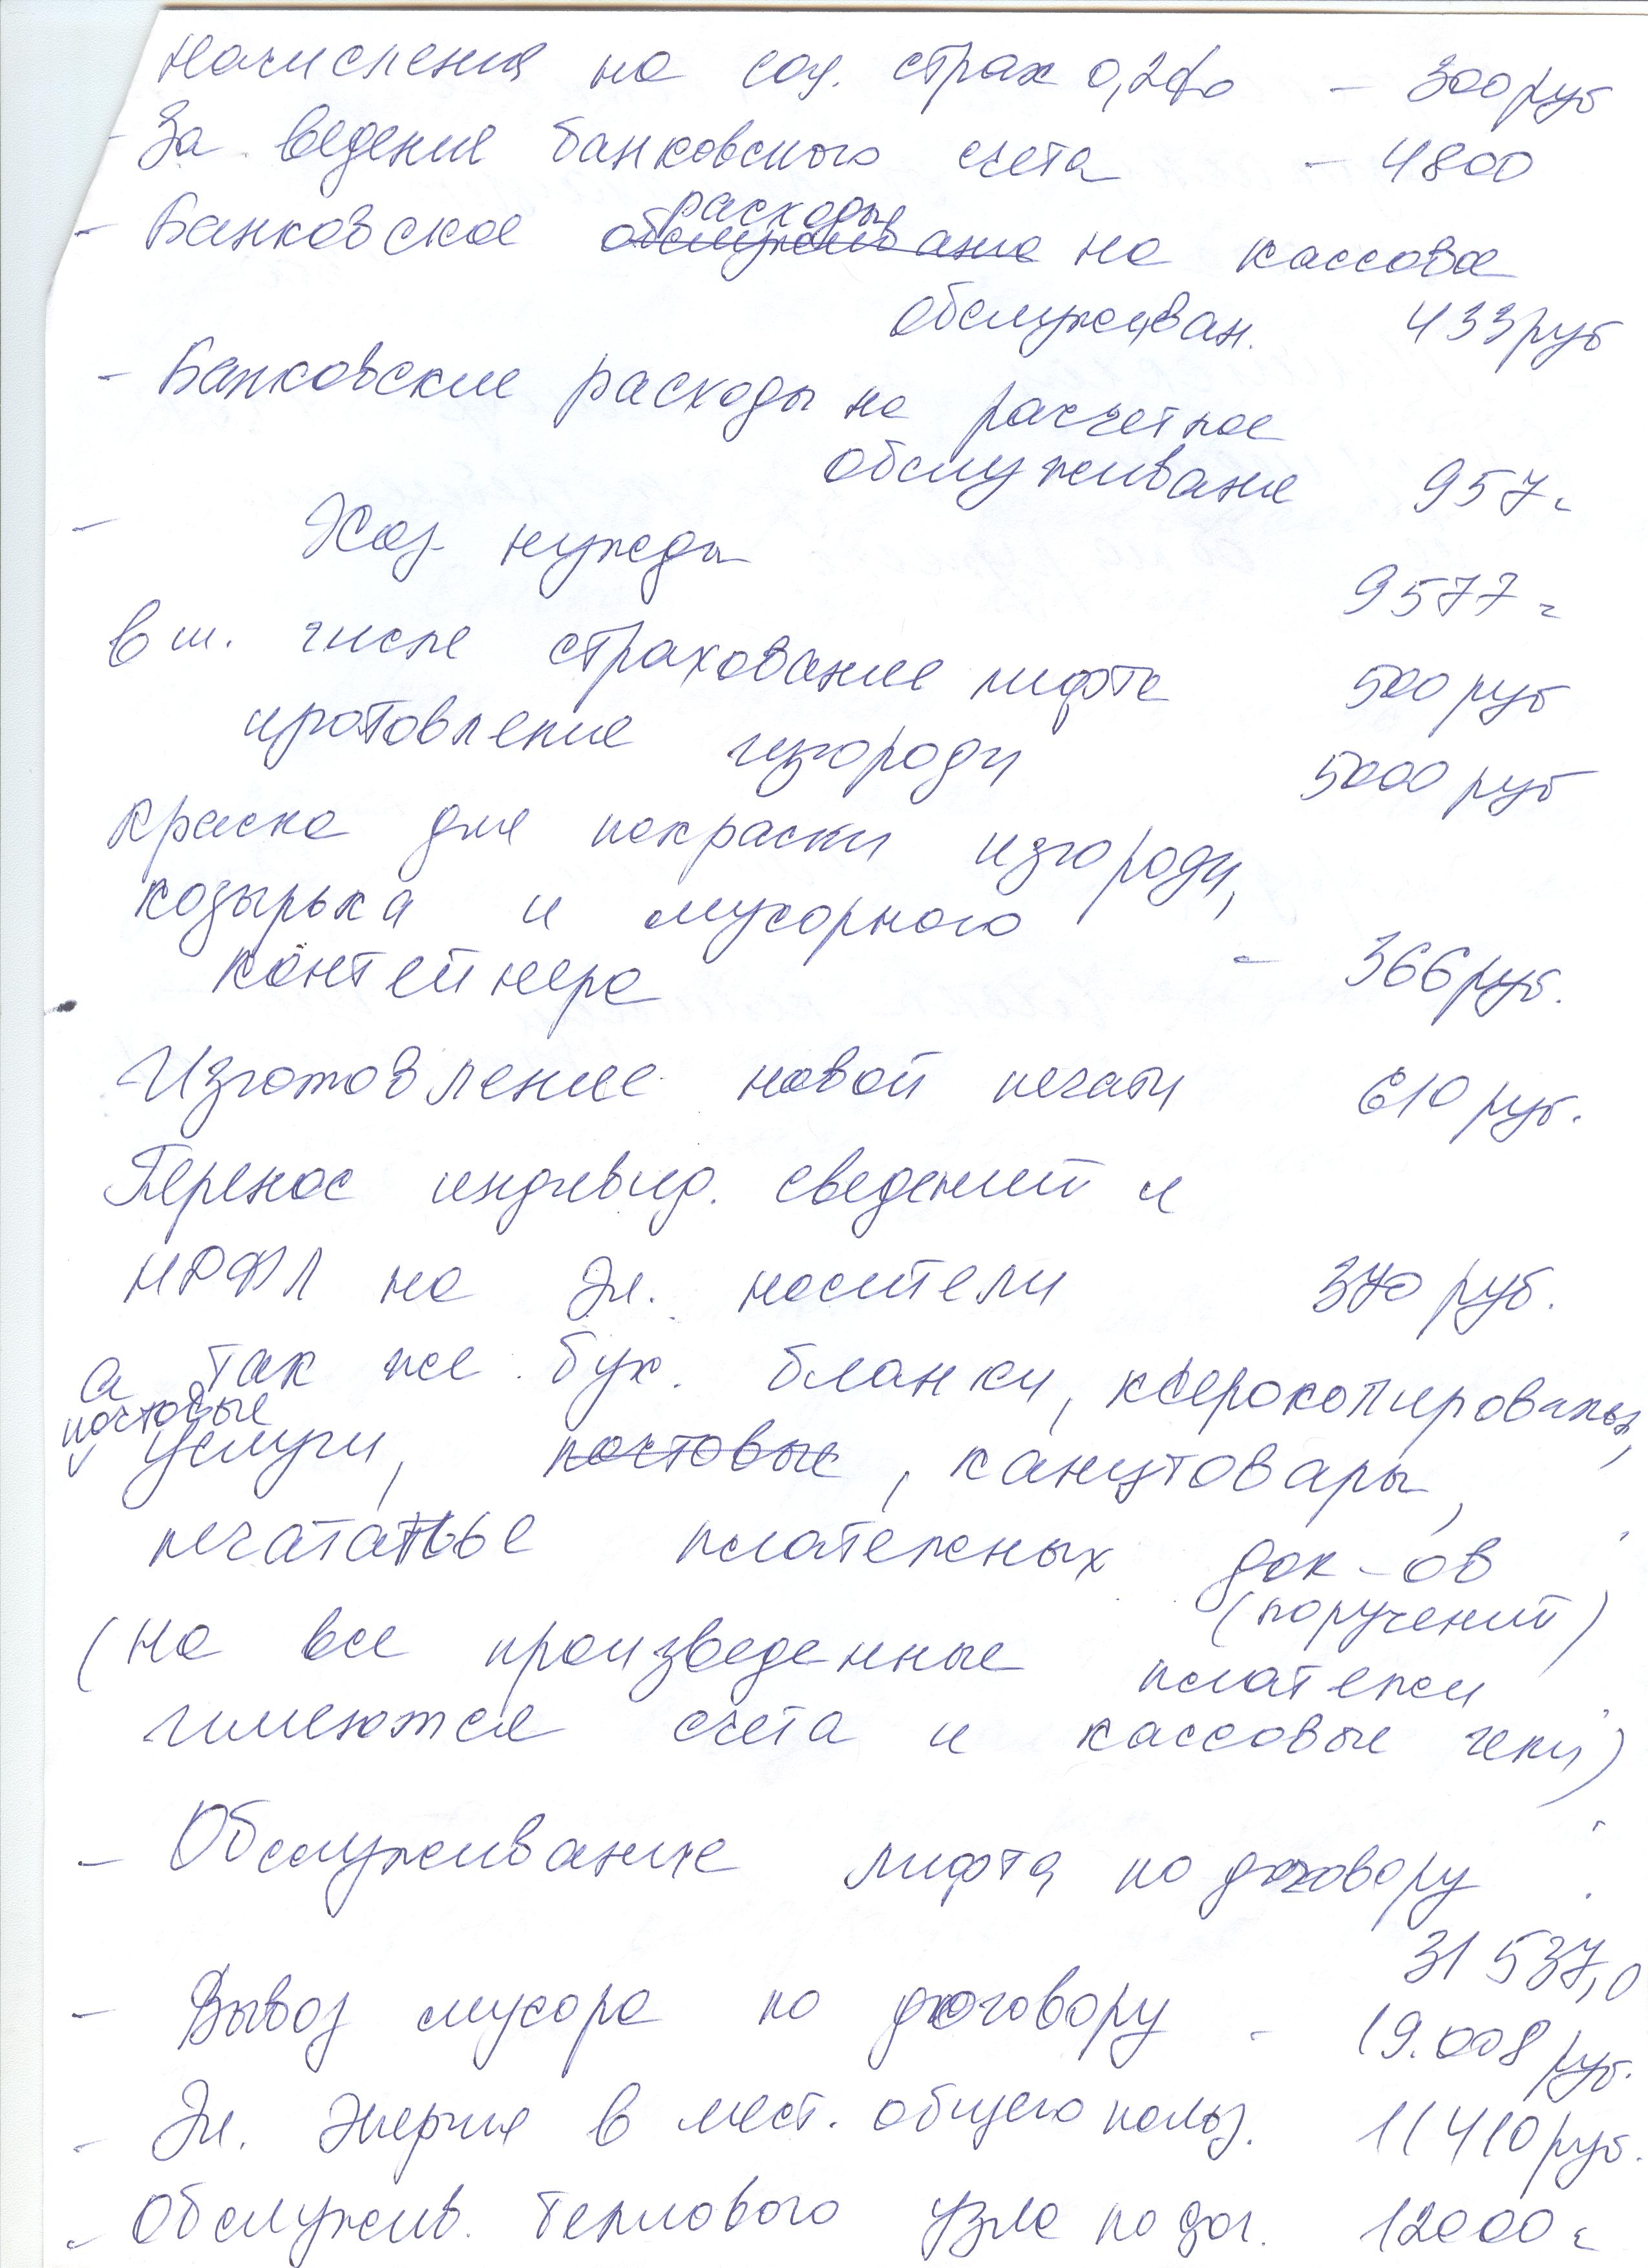 начисления на соц. страх 0,2% - 300 руб
- За ведение банковского счета - 4800
расходы
- Банковское обслуживание на кассовое
обслуживан. 433 руб
- Банковские расходы на расчетное
обслуживание 957=
- Хоз. нужды
9577=
в т. числе страхование лифта 500 руб
изготовление изгороди 5000 руб
краска для покраски изгороди,
козырька и мусорного
контейнера - 366 руб.
Изготовление новой печати 610 руб.
Перенос индивид. сведений и
НДФЛ на эл. носители 370 руб.
а так же бух. бланки, ксерокопировальн,
почтовые
услуги, почтовые, канцтовары,
печатанье платежных док-ов
(поручений)
(на все произведенные платежи
имеются счета и кассовые чеки)
- Обслуживание лифта по договору
31 537,0
- Вывоз мусора по договору - 19.008 руб.
- Эл. энергия в мест. общего польз. 11410 руб.
- Обслужив. теплового узла по дог. 12000=